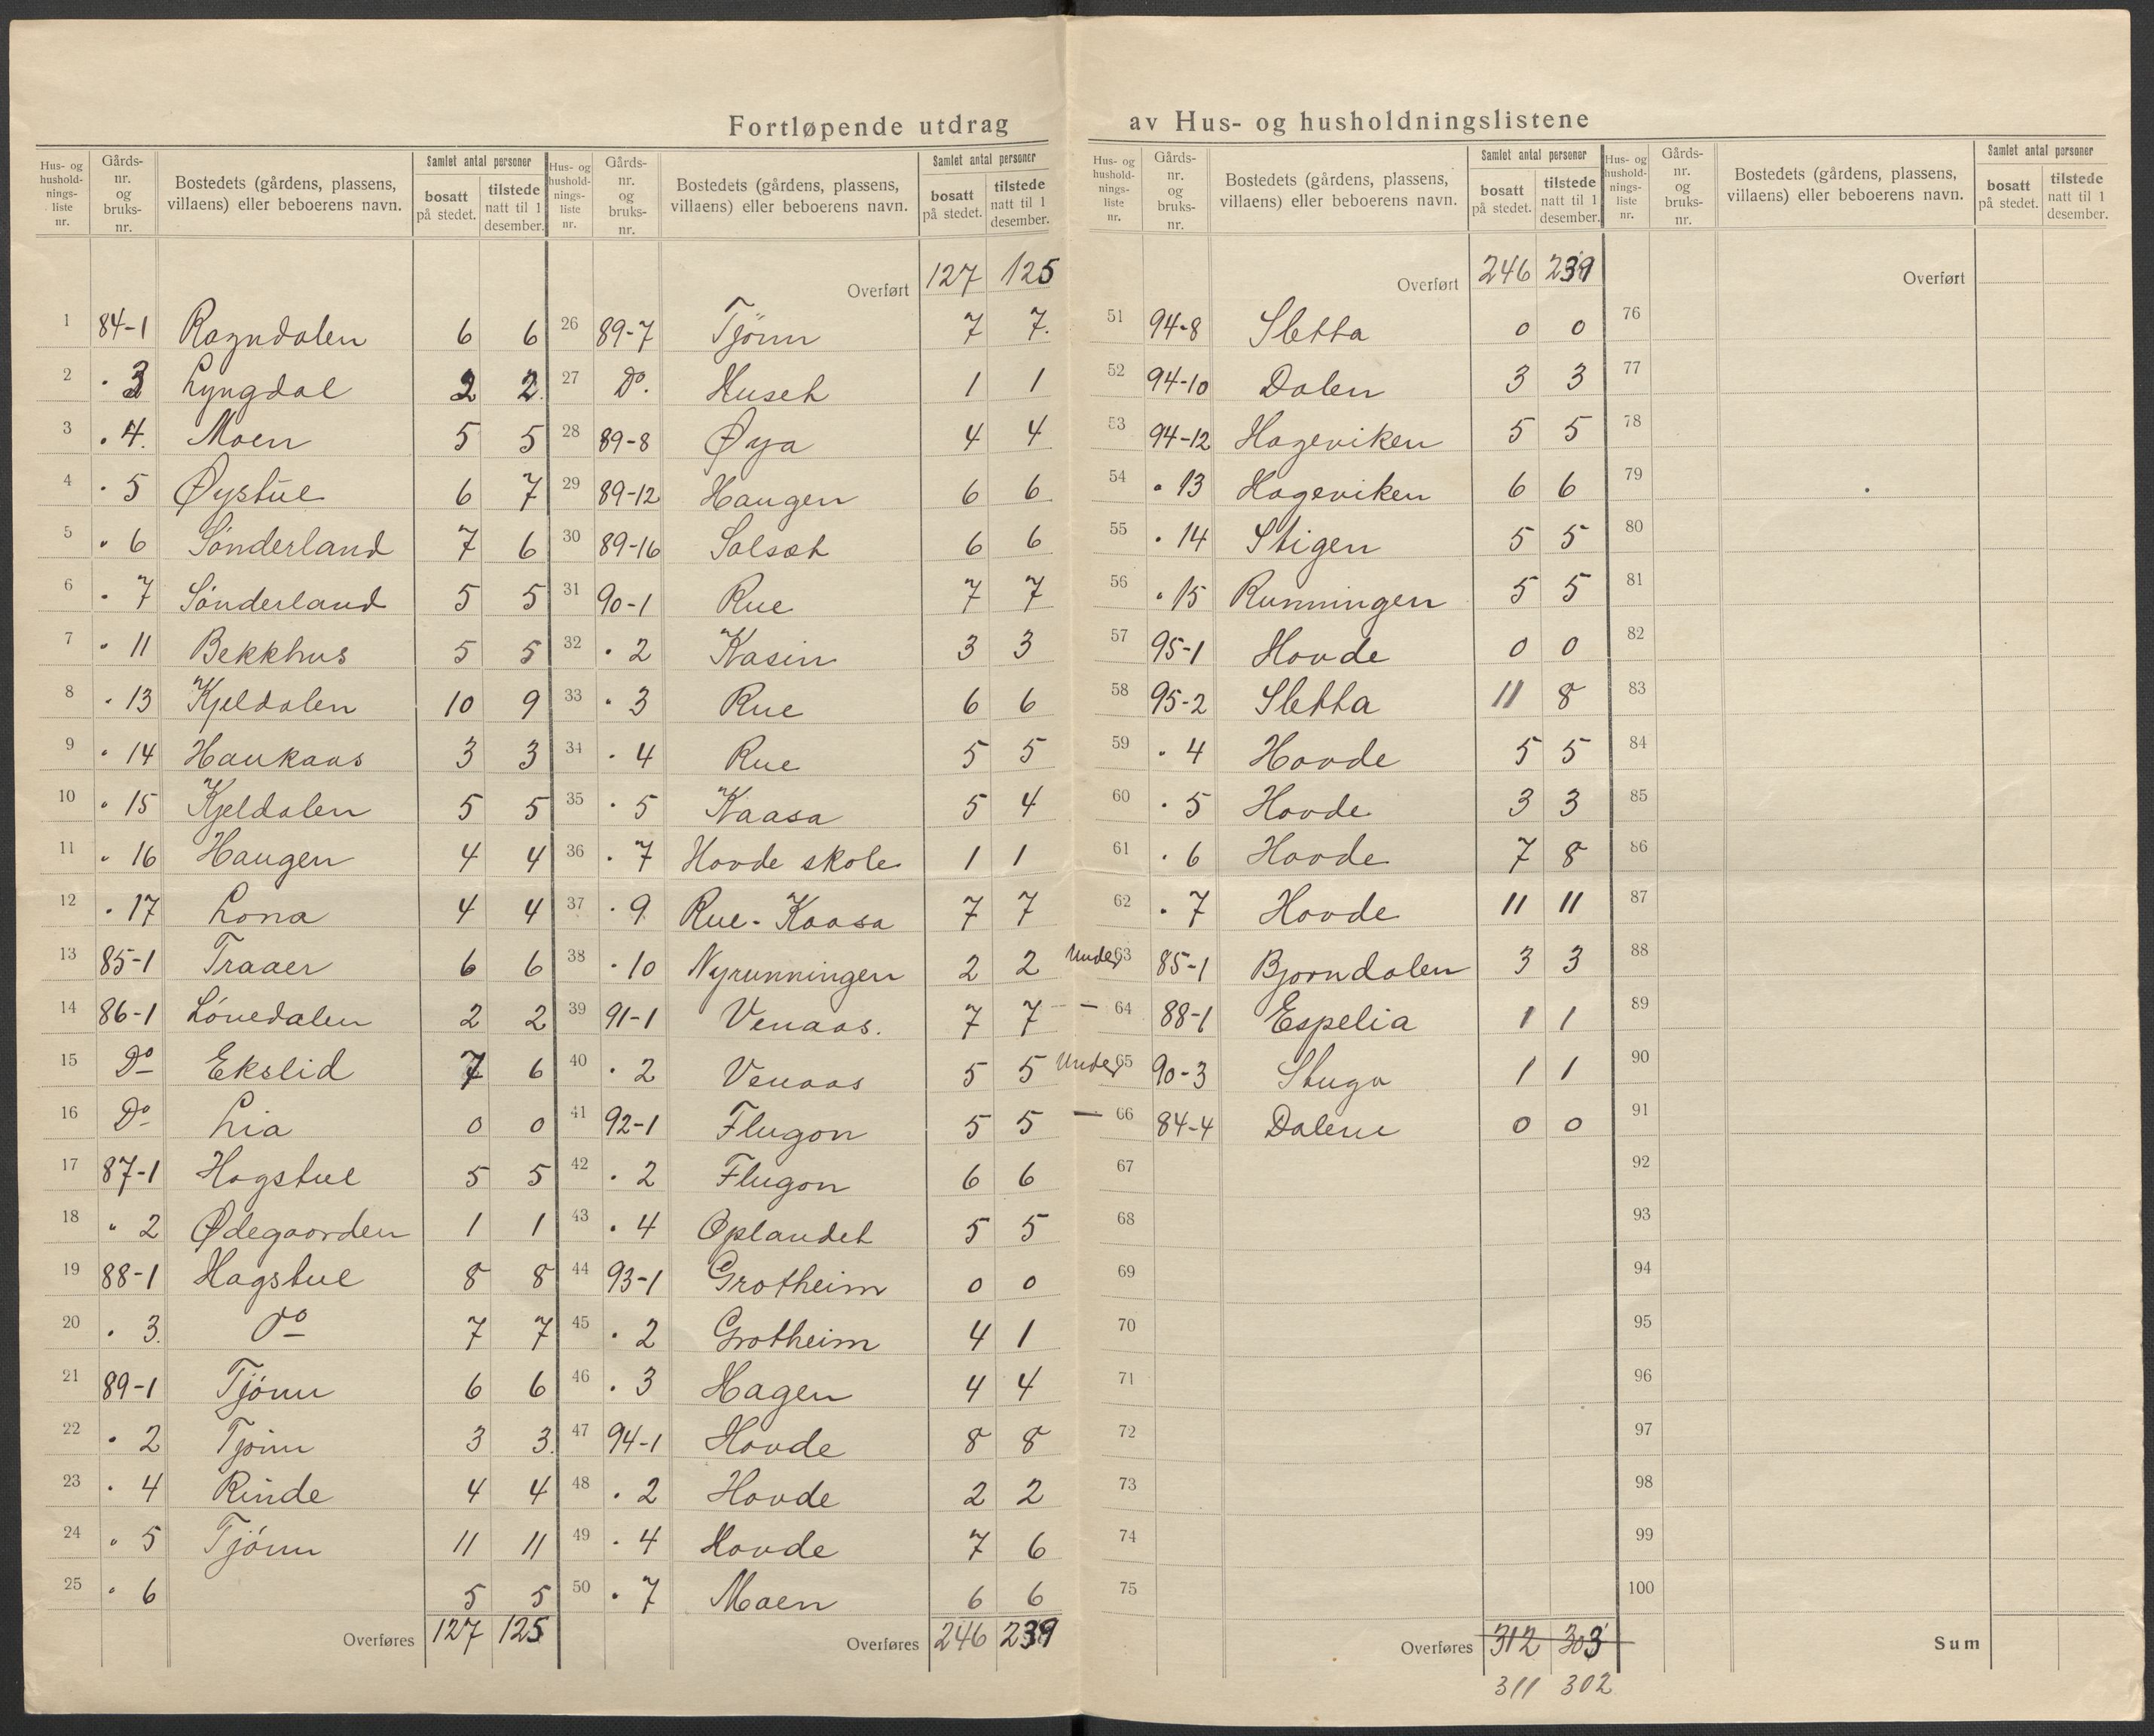 Fortløpende utdrag av Hus- og husholdningslistene
Hus- og husholdnings- liste nr. | Gårds- nr. og bruks- nr. | Bostedets (gårdens, plassens, villaens) eller beboerens navn. | Samlet antal personer: bosatt på stedet. | tilstede natt til 1 desember.
1 84-1 Ragndalen 6 6
2 " 3 Lyngdal 2 2
3 " 4. Moen 5 5
4 " 5 Øystue 6 7
5 " 6 Sønderland 7 6
6 " 7 Sønderland 5 5
7 " 11 Bekkhus 5 5
8 " 13 Kjeldalen 10 9
9 " 14 Haukaas 3 3
10 " 15 Kjeldalen 5 5
11 " 16 Haugen 4 4
12 " 17 Lona 4 4
13 85-1 Traaer 6 6
14 86-1 Lönedalen 2 2
15 Do Ekslid 7 6
16 Do Lia 0 0
17 87-1 Hagstue 5 5
18 " 2 Ødegaarden 1 1
19 88-1 Hagstue 8 8
20 " 3. Do 7 7
21 89-1 Tjönn 6 6
22 " 2 Tjönn 3 3.
23 " 4 Rinde 4 4
24 " 5 Tjönn 11 11
25 " 6 5 5
Overføres 127 125
Hus- og husholdnings- liste nr. | Gårds- nr. og bruks- nr. | Bostedets (gårdens, plassens, villaens) eller beboerens navn. | Samlet antal personer: bosatt på stedet. | tilstede natt til 1 desember.
Overført 127 125
26 89-7 Tjönn 7 7.
27 Do. Huset 1 1
28 89-8 Øya 4 4
29 89-12 Haugen 6 6
30 89-16 Solset 6 6
31 90-1 Rue 7 7
32 " 2 Kasin 3 3
33 " 3 Rue 6 6
34 " 4 Rue 5 5
35 " 5 Kaasa 5 4
36 " 7 Hovde skole 1 1
37 " 9 Rue-Kaasa 7 7
38 " 10 Nyrunningen 2 2
39 91-1 Venaas. 7 7
40 " 2 Venaas 5 5
41 92-1 Flugon 5 5
42 " 2 Flugon 6 6
43 " 4 Oplandet 5 5
44 93-1 Grotheim 0 0
45 " 2 Grotheim 4 1
46 " 3 Hagen 4 4
47 94-1 Hovde 8 8
48 " 2 Hovde 2 2
49 " 4 Hovde 7 6
50 " 7 Moen 6 6
Overføres 246 239
Hus- og husholdnings- liste nr. | Gårds- nr. og bruks- nr. | Bostedets (gårdens, plassens, villaens) eller beboerens navn. | Samlet antal personer: bosatt på stedet. | tilstede natt til 1 desember.
Overført 246 239
51 94-8 Sletta 0 0
52 94-10 Dalen 3 3
53 94-12 Hageviken 5 5
54 " 13 Hageviken 6 6
55 " 14 Stigen 5 5
56 " 15 Runningen 5 5
57 95-1 Hovde 0 0
58 95-2 Sletta 11 8
59 " 4 Hovde 5 5
60 " 5 Hovde 3 3
61 " 6 Hovde 7 8
62 " 7 Hovde 11 11
Under 63 85-1 Bjorndalen 3 3
— 64 88-1 Espelia 1 1
Under 65 90-3 Stuga 1 1
— 66 84-4 Dalene 0 0
67
68
69
70
71
72
73
74
75
Overføres 312 303
311 302
Hus- og husholdnings- liste nr. | Gårds- nr. og bruks- nr. | Bostedets (gårdens, plassens, villaens) eller beboerens navn. | Samlet antal personer: bosatt på stedet. | tilstede natt til 1 desember.
Overført
76
77
78
79
80
81
82
83
84
85
86
87
88
89
90
91
92
93
94
95
96
97
98
99
100
Sum